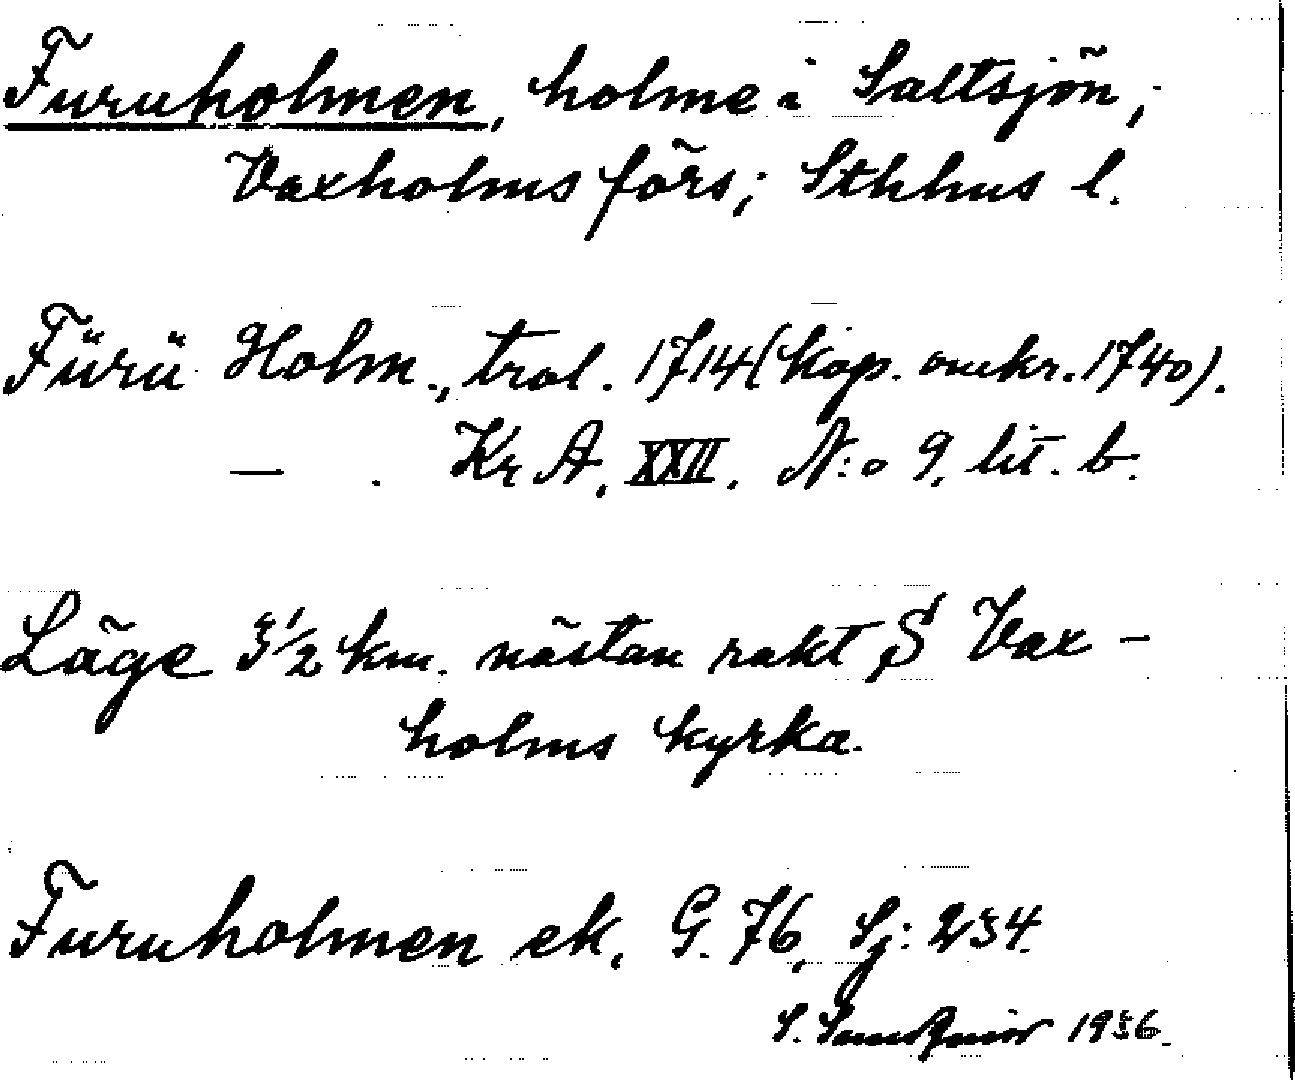 Furuholmen, holme i Saltsjön,
Vaxholms förs; Sthlms l.
Fürü Holm., trol. 1714 (kop. omkr. 1740).
— . Kr A. XXII. N:o 9. lit. b.
Läge 3 1/2 km. nästan rakt S Vax-
holms kyrka.
Furuholmen ek. G. 76, Sj: 234.
S. 1936.